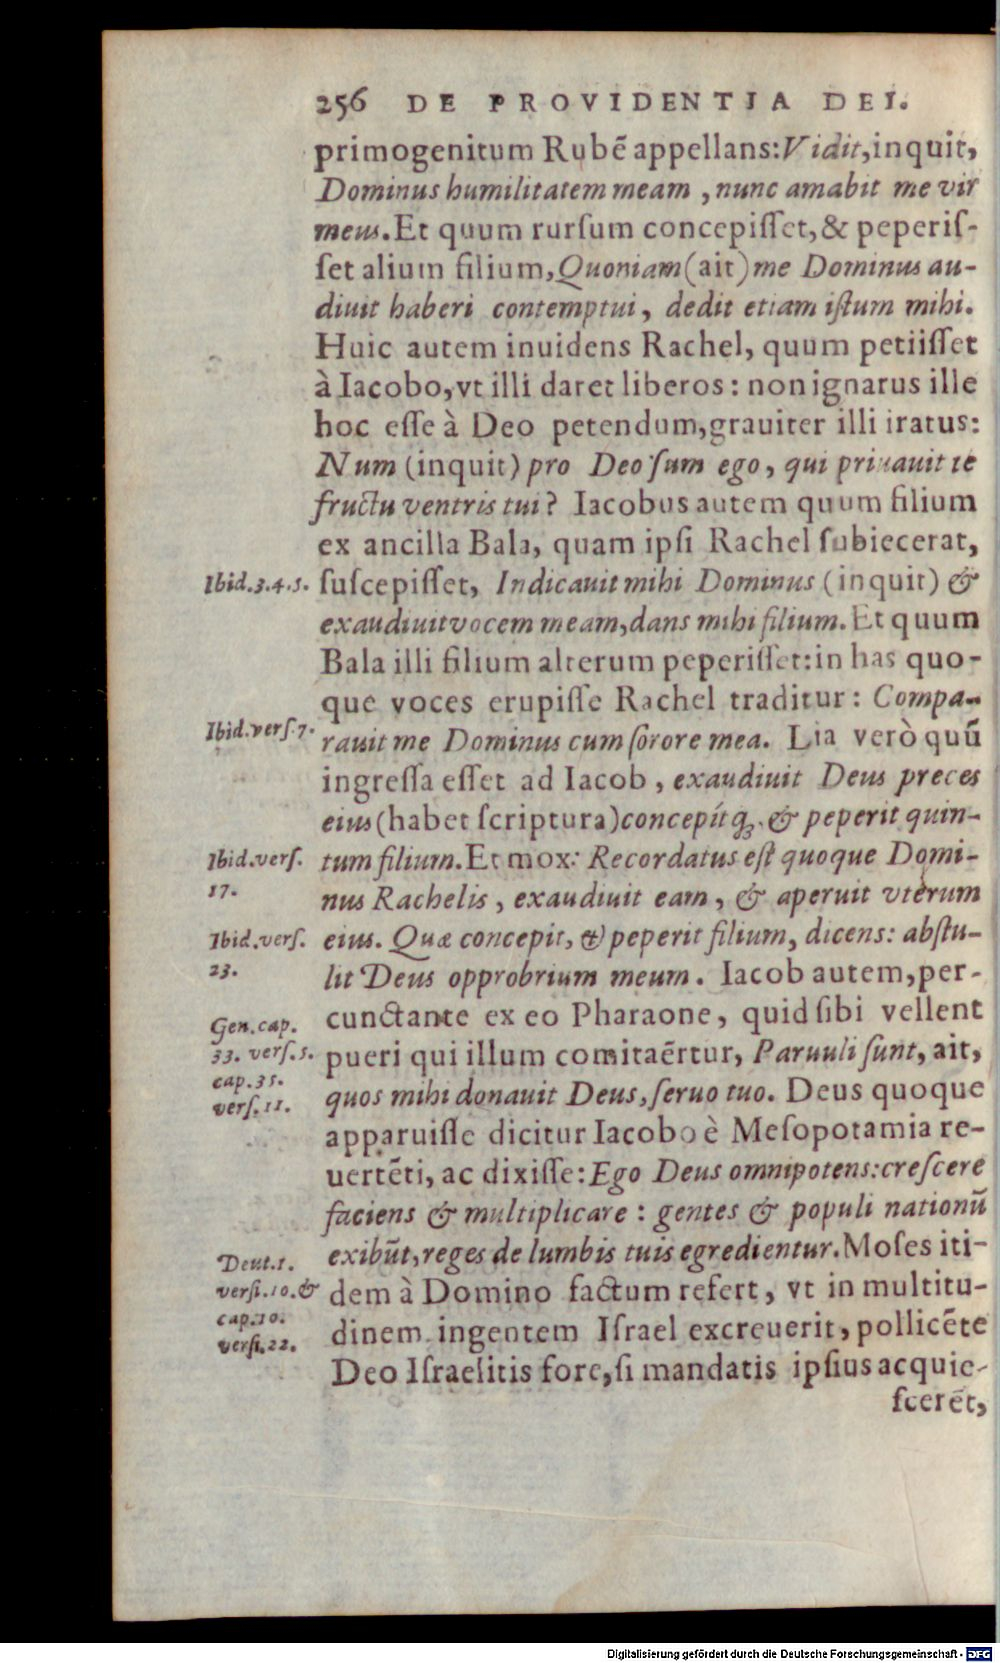 256 DE PROVIDENTIA DEI.
primogenitum Rubẽ appellans: Vidit, inquit,
Dominus humilitatem meam, nunc amabit me vir
meus. Et quum rursum concepiſſet, & peperiſ-
ſet alium filium, Quoniam (ait) me Dominus au-
diuit haberi contemptui, dedit etiam iſtum mihi.
Huic autem inuidens Rachel, quum petiiſſet
à Iacobo, vt illi daret liberos: non ignarus ille
hoc eſſe à Deo petendum, grauiter illi iratus:
Num (inquit) pro Deo ſum ego, qui priuauit te
fructu ventris tui? Iacobus autem quum filium
ex ancilla Bala, quam ipſi Rachel ſubiecerat,
Ibid. 3.4.5. ſuſcepiſſet, Indicauit mihi Dominus (inquit) &
exaudiuit vocem meam, dans mihi filium. Et quum
Bala illi filium alterum peperiſſet: in has quo-
que voces erupiſſe Rachel traditur: Compa-
Ibid. verſ. 7. rauit me Dominus cum ſorore mea. Lia verò quũ
ingreſſa eſſet ad Iacob, exaudiuit Deus preces
eius (habet ſcriptura) concepítq́; & peperit quin-
Ibid. verſ. tum filium. Et mox: Recordatus eſt quoque Domi-
17. nus Rachelis, exaudiuit eam, & aperuit vterum
Ibid. verſ. eius. Quæ concepit, & peperit filium, dicens: abſtu-
23. lit Deus opprobrium meum. Iacob autem, per-
Gen. cap. cunctante ex eo Pharaone, quid ſibi vellent
33. verſ. 5. pueri qui illum comitaẽrtur, Paruuli ſunt, ait,
cap. 35. quos mihi donauit Deus, ſeruo tuo. Deus quoque
verſ. 11. apparuiſſe dicitur Iacobo è Meſopotamia re-
uertẽti, ac dixiſſe: Ego Deus omnipotens: creſcere
faciens & multiplicare: gentes & populi nationũ
Deut. 1. exibũt, reges de lumbis tuis egredientur. Moſes iti-
verſi. 10. & dem à Domino factum refert, vt in multitu-
cap. 10. dinem ingentem Iſrael excreuerit, pollicẽte
verſi. 22. Deo Iſraelitis fore, ſi mandatis ipſius acquie-
ſcerẽt,
Digitalisierung gefördert durch die Deutsche Forschungsgemeinschaft - DFG